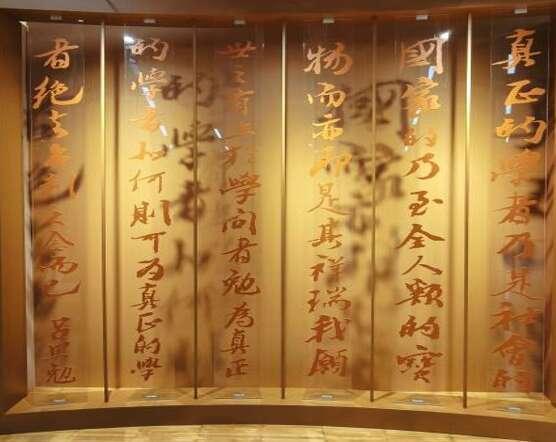 真正的學者乃是社會的
國家的乃至全人類的寶
物而亦即是其祥瑞我願
世之有志於學問者勉為真正
的學者如何則可為真正的學
者絕去名利之念而已
呂思勉